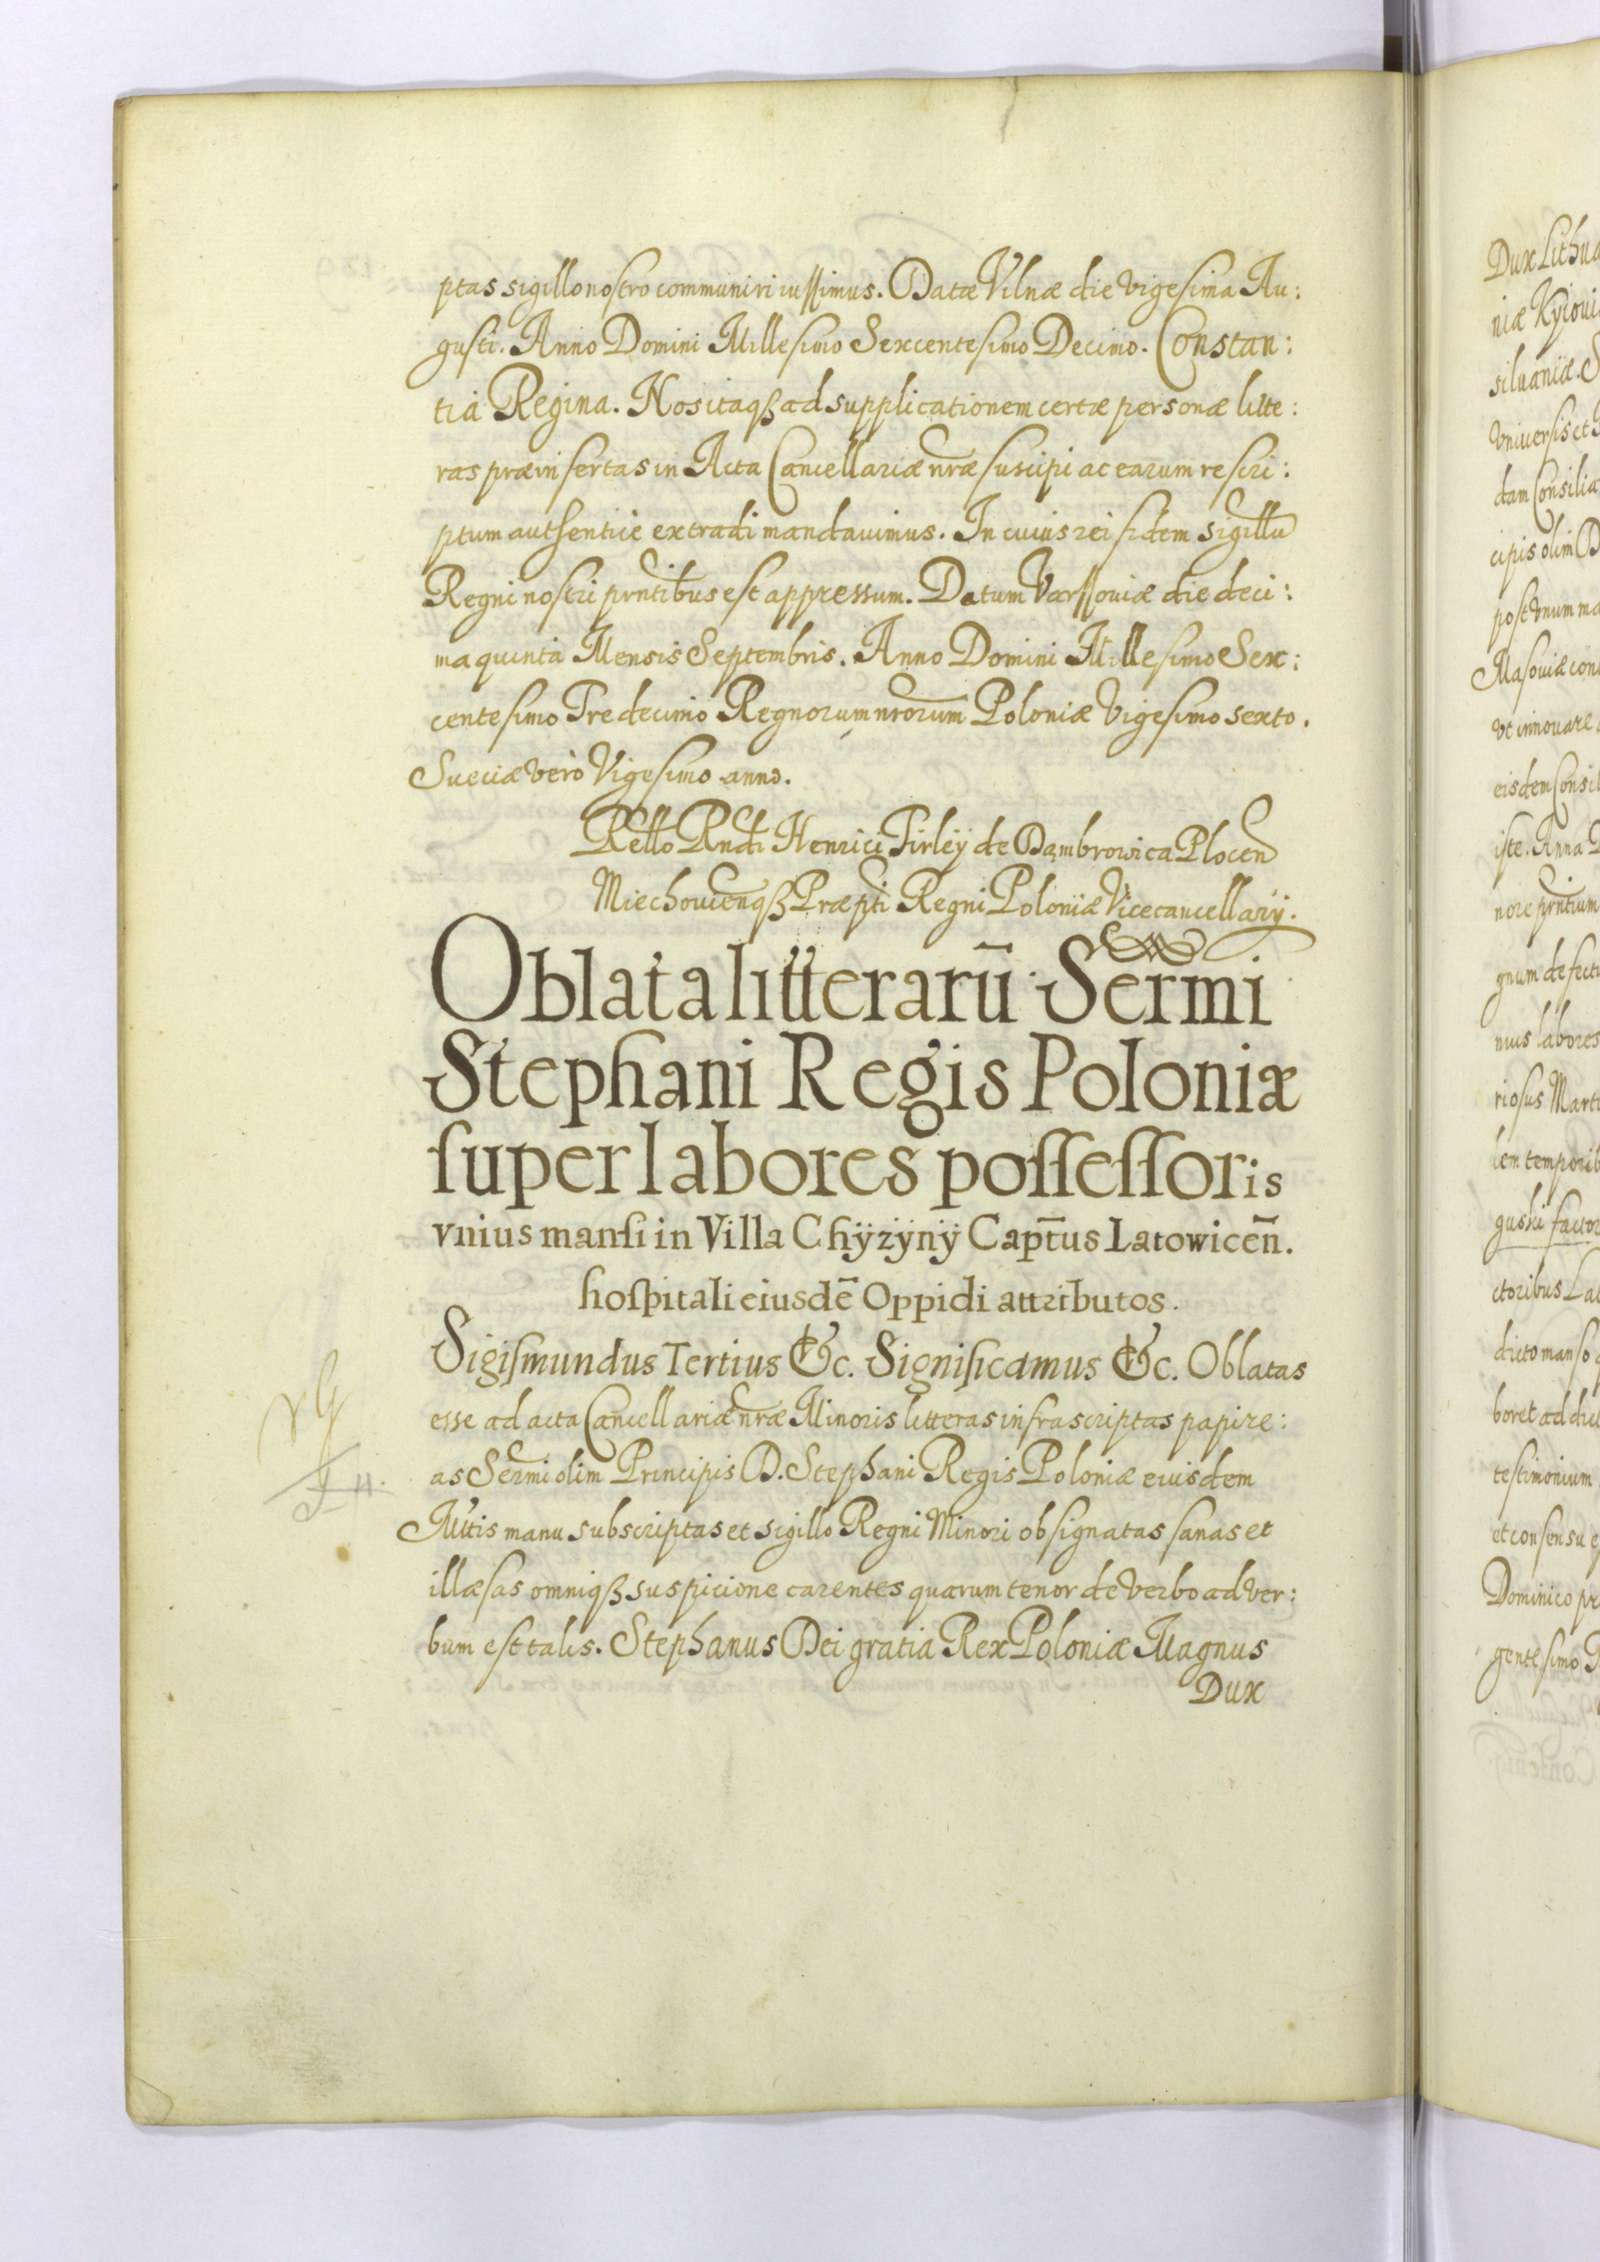 ptas sigillo nostro communiri iussimus. Datæ Vilnæ die vigesima Au:
gusti. Anno Domini Millesimo Sexcentesimo Decimo. Constan:
tia Regina. Nos itaqꝫ ad supplicationem certæ personæ litte:
ras præinsertas in Acta Cancellariæ nr̃æ suscipi ac earum rescri:
ptum authentice extradi mandauimus. In cuius rei fidem sigillũ
Regni nostri prñtibus est appressum. Datum Varssouiæ die deci:
ma quinta Mensis Septembris. Anno Domini Millesimo Sex:
centesimo Tredecimo Regnorum nrõrum Poloniæ Vigesimo sexto.
Sueciæ verò Vigesimo anno.
Rell̃o Rndĩ Henrici Firleÿ de Dąmbrowica Plocen̄
Miechouien̄qꝫ Præp̃ti Regni Poloniæ Vicecancellarÿ.
Oblata litterarū Serm̄i
Stephani Regis Poloniæ
super labores possessoris
vnius mansi in Villa Chÿzÿnÿ Capt̄us Latowicen̄.
hospitali eiusdē Oppidi attributos.
Sigismundus Tertius &c. Significamus &c. Oblatas
esse ad acta Cancellariæ nr̃æ Minoris litteras infrascriptas papire:
as Serm̃i olim Principis D. Stephani Regis Poloniæ eiusdem
Mttis manu subscriptas et sigillo Regni Minori obsignatas sanas et
illæsas omniqꝫ suspicione carentes quarum tenor de verbo ad ver:
bum est talis. Stephanus Dei gratia Rex Poloniæ Magnus
Dux
Dux Lithua
niæ Kyioui
siluaniæ. S
Vniuersis et
dam Consilia
cipis olim D
post vnum ma
Masouiæ con
vt innouare
eisdem Consil
iste. Anna
nore prñtium
gnum defectu
nius labores
riosus Marti
lem temporib
guski factor
ctoribus Lat
dicto manso
boret ad dict
testimonium
et consensu
Dominico pr
gentesimo